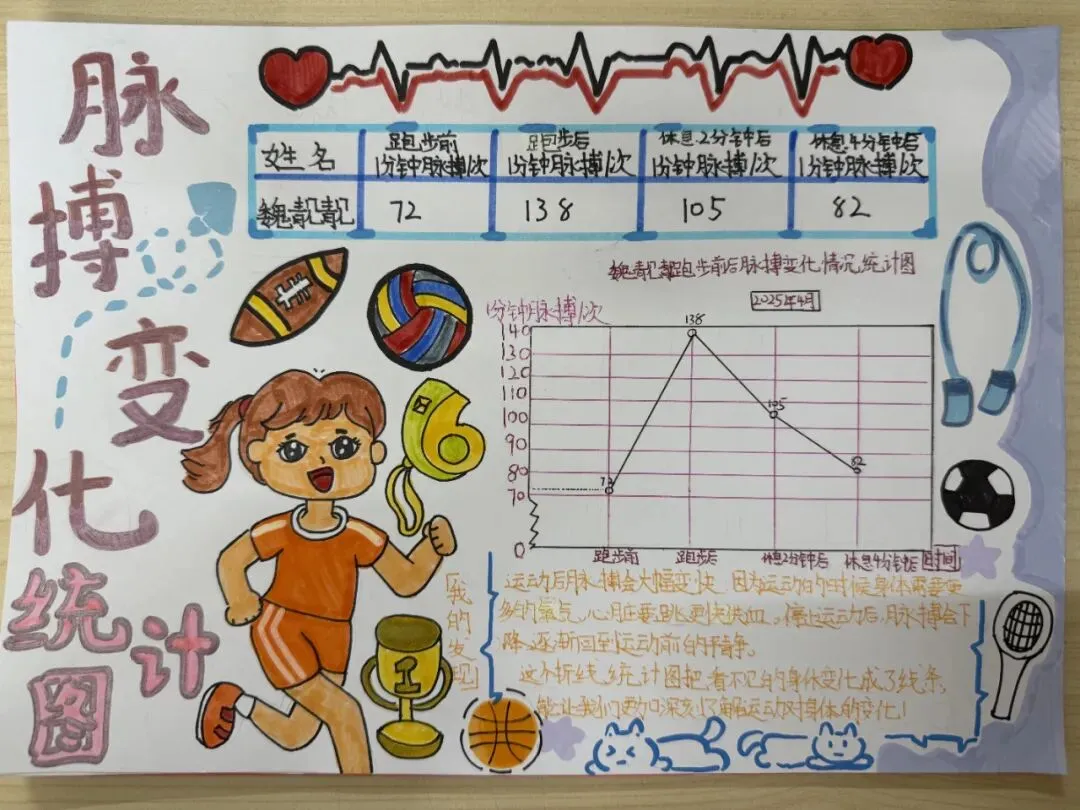 脉搏变化统计图
姓名 跑步前1分钟脉搏/次 跑步后1分钟脉搏/次 休息2分钟后1分钟脉搏/次 休息4分钟后1分钟脉搏/次
魏靓靓 72 138 105 82
魏靓靓跑步前后脉搏变化情况统计图
2025年4月
1分钟脉搏/次
140
130
120
110
100
90
80
70
0
138
105
82
72
跑步前 跑步后 休息2分钟后 休息4分钟后 时间
6
1
[我的发现]
运动后脉搏会大幅变快 因为运动的时候身体需要更
多的氧气,心脏要跳更快供血。停止运动后,脉搏会下
降,逐渐回到运动前的平静。
这个折线统计图把看不见的身体变化成了线条,
能让我们更加深刻了解运动对身体的变化!